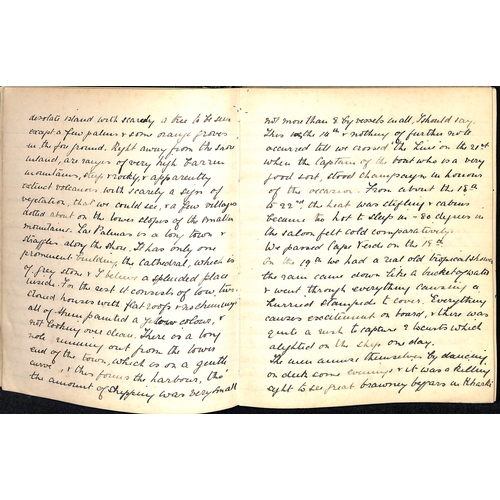 desolate island with scarcely a tree to be seen
except a few palms & some orange groves
in the foreground. Right away from the shore
inland, are ranges of very high barren
mountains, steep & rocky, & apparently
extinct volcanoes with scarcely a sign of
vegetation, that we could see, & a few villages
dotted about on the lower slopes of the smaller
mountains. Las Palmas is a long town &
straggles along the shore. It has only one
prominent building, the Cathedral, which is
of grey stone & I believe a splendid place
inside. For the rest it consists of low two
storied houses with flat roofs & no chimneys
all of them painted a yellow colour, &
not looking over clean. There is a long
mole running out from the lower
end of the town, which is on a gentle
curve, & this forms the harbour, tho'
the amount of shipping was very small
not more than 8 big vessels in all, I should say.
This was the 14th & nothing of further note
occurred till we crossed "The Line" on the 21st
when the Captain of the boat who is a very
good sort, stood champagne in honour
of the occasion. From about the 18th
to 22nd the heat was stifling & cabins
became too hot to sleep in - 80 degrees in
the saloon felt cold comparatively.
We passed Cape Verde on the 18th.
On the 19th we had a real old tropical shower
the rain came down like a bucket of water
& went through everything causing a
hurried stampede to cover. Everything
causes excitement on board, & there was
quite a rush to capture 2 locusts which
alighted on the ship one day.
The men amuse themselves by dancing
on deck some evenings & it was a killing
sight to see great brawny beggars in Khaki